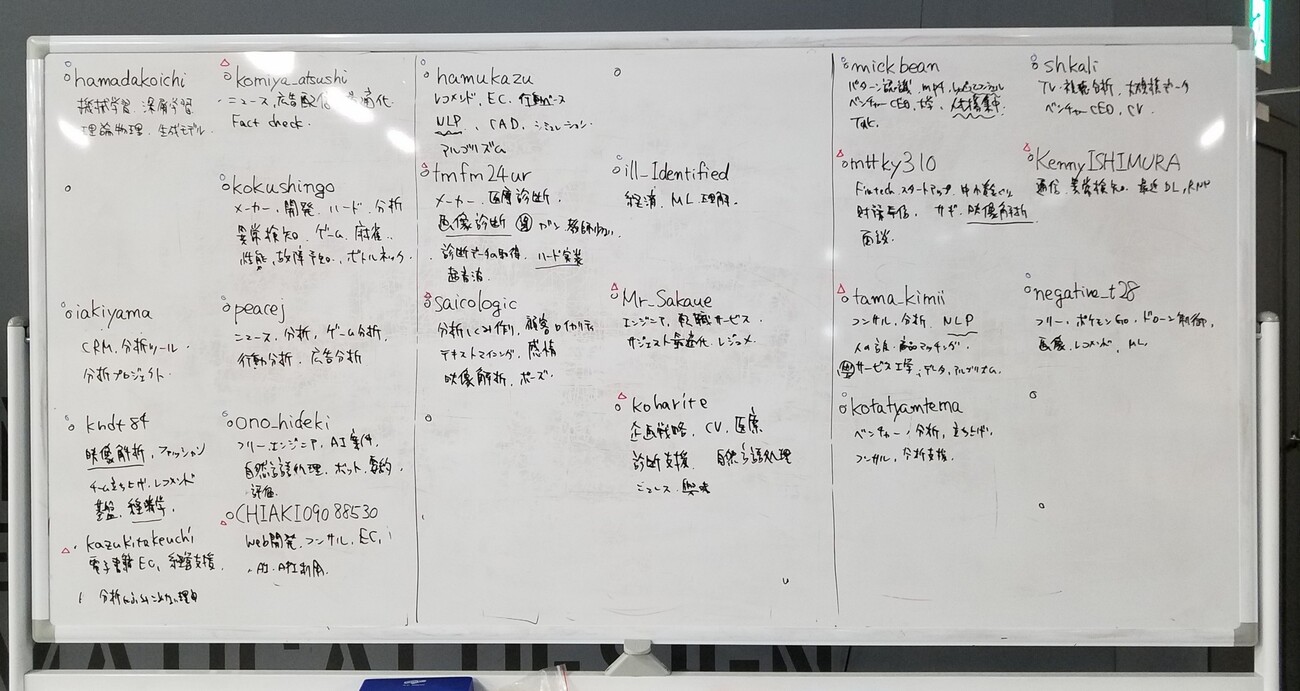 hamadakoichi
機械学習, 深層学習
理論物理, 生成モデル.
komiya_atsushi
ニュース, 広告配信, 適化.
Fact check.
kokushingo
メーカー, 開発, ハード, 分析
異常検知, ゲーム, 麻雀
性能, 故障予知, ボトルネック
iakiyama
CRM, 分析ツール
分析プロジェクト.
peacej
ニュース, 分析, ゲーム分析,
行動分析, 広告分析
kndt84
映像解析, ファッション
チーム立ち上げ, レコメンド
基盤, 経済学,
ono_hideki
フリーエンジニア, AI案件,
自然言語処理, ボット, 要約,
評価.
kazukitakeuchi
電子書籍 EC, 経営支援,
分析 理由
CHIAKI09088530
Web開発, コンサル, EC,
AI
hamukazu
レコメンド, EC, 行動ベース
NLP, CAD, シミュレーション,
アルゴリズム
tmfm24ur
メーカー, 医療診断,
画像診断 ガン
診断データの取得, ハード実装
超音波.
ill_Identified
経済, ML, 理解,
saicologic
分析しくみ作り, 顧客ロイヤリティ
テキストマイニング, 感情
映像解析, ポーズ.
Mr_Sakaue
エンジニア, 転職サービス,
サジェスト最適化, レジュメ,
koharite
企画戦略, CV, 医療,
診断支援, 自然言語処理
興味
mickbean
パターン認識
ベンチャーCEO, 大学, 人材募集中
shkali
TV, 視聴分析, 大規模データ
ベンチャーCEO, CV.
mttky310
Fintechスタートアップ, 中小
財務与信, サギ, 映像解析
面談.
KennyISHIMURA
通信, 異常検知, 最近DL, RNN
tama_kimii
コンサル, 分析, NLP
人の 商品マッチング,
サービス工学, データ, アルゴリズム.
negative_t28
フリー, ポケモンGo, ドローン制御,
画像, レコメンド, ML,
kotatyamtema
ベンチャー, 分析, 立ち上げ,
コンサル, 分析支援,